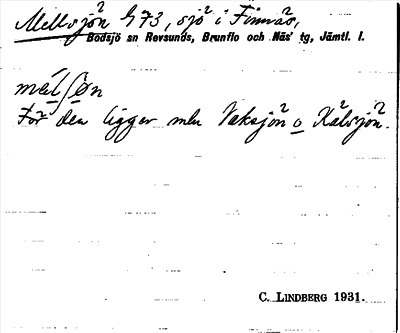 Mellsjön G 73, sjö i Finnäs,
Bodsjö sn Revsunds, Brunflo och Näs' tg, Jämtl. l.
För den ligger mln Vaksjön o Kälsjön.
C. LINDBERG 1931.